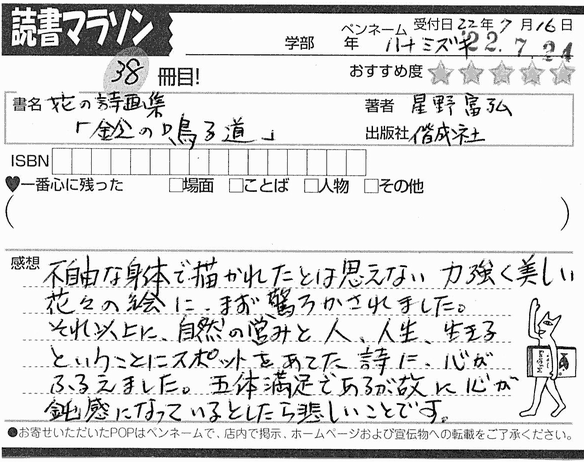 読書マラソン
学部 年 ペンネーム ハナミズキ 受付日 22年7月16日
22.7.24
38 冊目!
おすすめ度
書名 花の詩画集
「鈴の鳴る道」
著者 星野富弘
出版社 偕成社
ISBN
♥一番心に残った □場面 □ことば □人物 □その他
感想 不自由な身体で描かれたとは思えない 力強く美しい
花々の絵に、まず驚ろかされました。
それ以上に、自然の営みと人、人生、生きる
ということにスポットをあてた詩に、心が
ふるえました。五体満足であるが故に心が
鈍感になっているとしたら悲しいことです。
●お寄せいただいたPOPはペンネームで、店内で掲示、ホームページおよび宣伝物への転載をご了承ください。